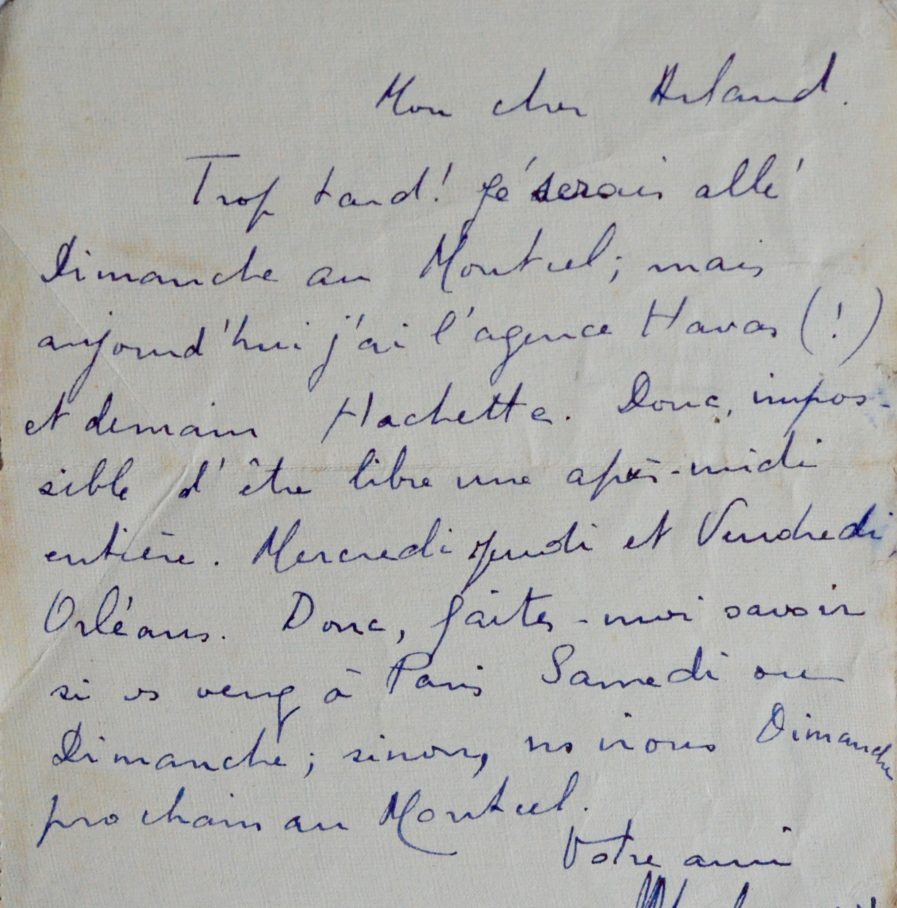 Mon cher Arland.
Trop tard! Je serais allé
Dimanche au Montcel; mais
aujourd'hui j'ai l'agence Havas (!)
et demain Hachette. Donc, impos-
sible d'être libre une après-midi
entière. Mercredi jeudi et Vendredi,
Orléans. Donc, faites-moi savoir
si vs venez à Paris Samedi ou
Dimanche; sinon, ns irons Dimanche
prochain au Montcel.
Votre ami